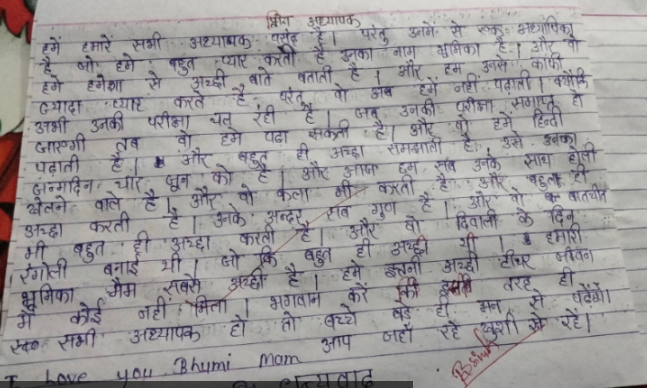 प्रिय अध्यापक
हमें हमारें सभी अध्यापक पसंद है। परंतु उनमें से एक अध्यापिका
है जो हमे बहुत प्यार करती है उनका नाम भूमिका है। और वो
हमे हमेशा से अच्छी बाते बताती है। और हम उनसे काफी
ज्यादा प्यार करते है परंतु वो अब हमें नही पढ़ाती। क्योंकि
अभी उनकी परीक्षा चल रही है। जब उनकी परीक्षा समाप्त हो
जाएगी तब वो हमे पढ़ा सकती है। और वो हमें हिन्दी
पढ़ाती है। और बहुत ही अच्छा समझाती है। उसे उनका
जन्मदिन चार जून को है। और आज हम सब उनके साथ होली
खेलने वाले है। और वो कला भी करती है और बहुत ही
अच्छा करती है। उनके अन्दर सब गुण है। और वो बातचीत
भी बहुत ही अच्छा करती है। और वो दिवाली के दिन
रंगोली बनाई थी। जो कि बहुत ही अच्छी थी। हमारी
भूमिका मैम सबसे अच्छी है। हमे इतनी अच्छी टीचर जीवन
में कोई नही मिला। भगवान करें की इसी तरह ही
सभी अध्यापक हो तो बच्चे बड़े ही मन से पढ़ेंगे।
आप जहाँ रहे खुशी से रहें।
I love you Bhumi Mam
धन्यवाद